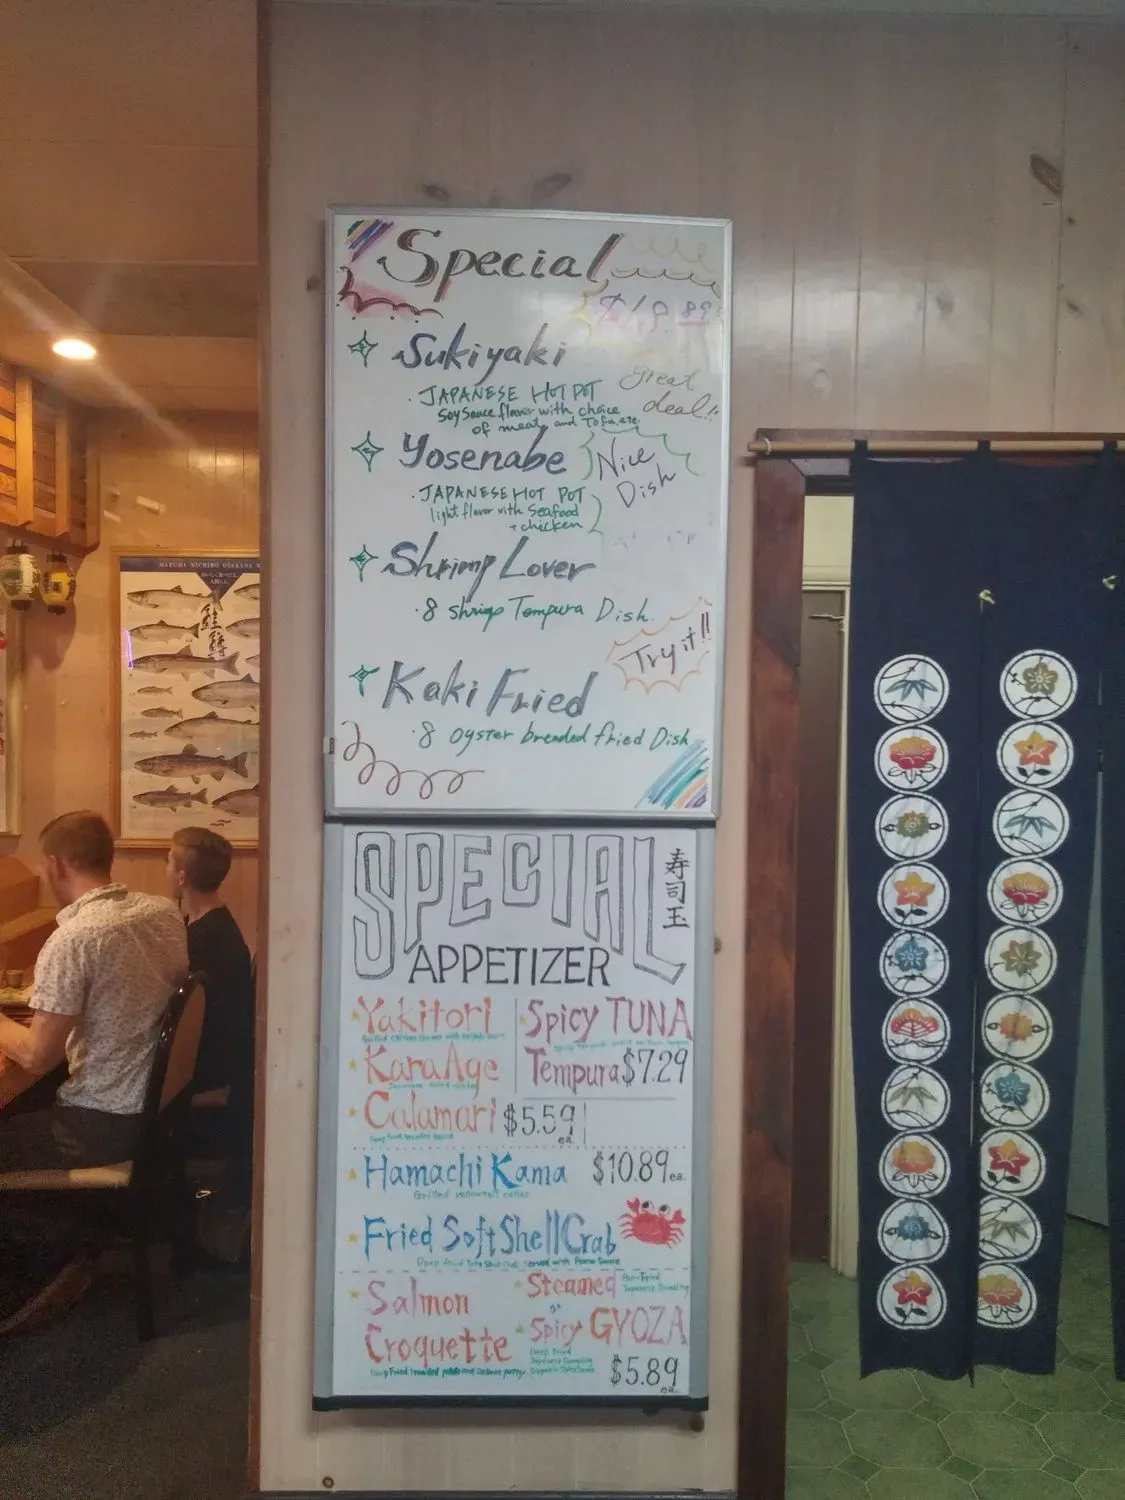 Special
$18.89!
Great
deal!!
Sukiyaki
· JAPANESE HOT POT
Soy Sauce flavor with choice
of meat, and Tofu, etc.
Yosenabe
Nice
Dish
· JAPANESE HOT POT
light flavor with Seafood
+ chicken
Shrimp Lover
· 8 shrimp Tempura Dish.
Try it!!
Kaki Fried
· 8 oyster breaded fried Dish
SPECIAL
寿司玉
APPETIZER
Yakitori
KaraAge
Calamari $5.59 ea.
Deep fried breaded squid
Spicy TUNA
Tempura $7.29
Hamachi Kama $10.89 ea.
Grilled yellowtail collar
Fried Soft Shell Crab
Deep fried Soft Shell Crab served with Ponzu Sauce
Salmon
Croquette
Deep Fried breaded potato and salmon patty
Steamed
Pan-Fried
Japanese Dumpling
or
Spicy GYOZA
Deep Fried
Japanese Dumpling
$5.89 ea.
MARUHA NICHIRO OSAKANA
鮭鱒